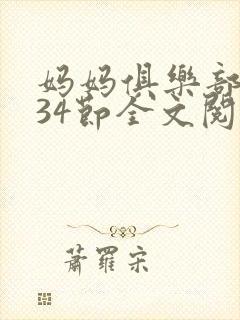 妈妈俱樂部
34節全文閱
蕭羅宋